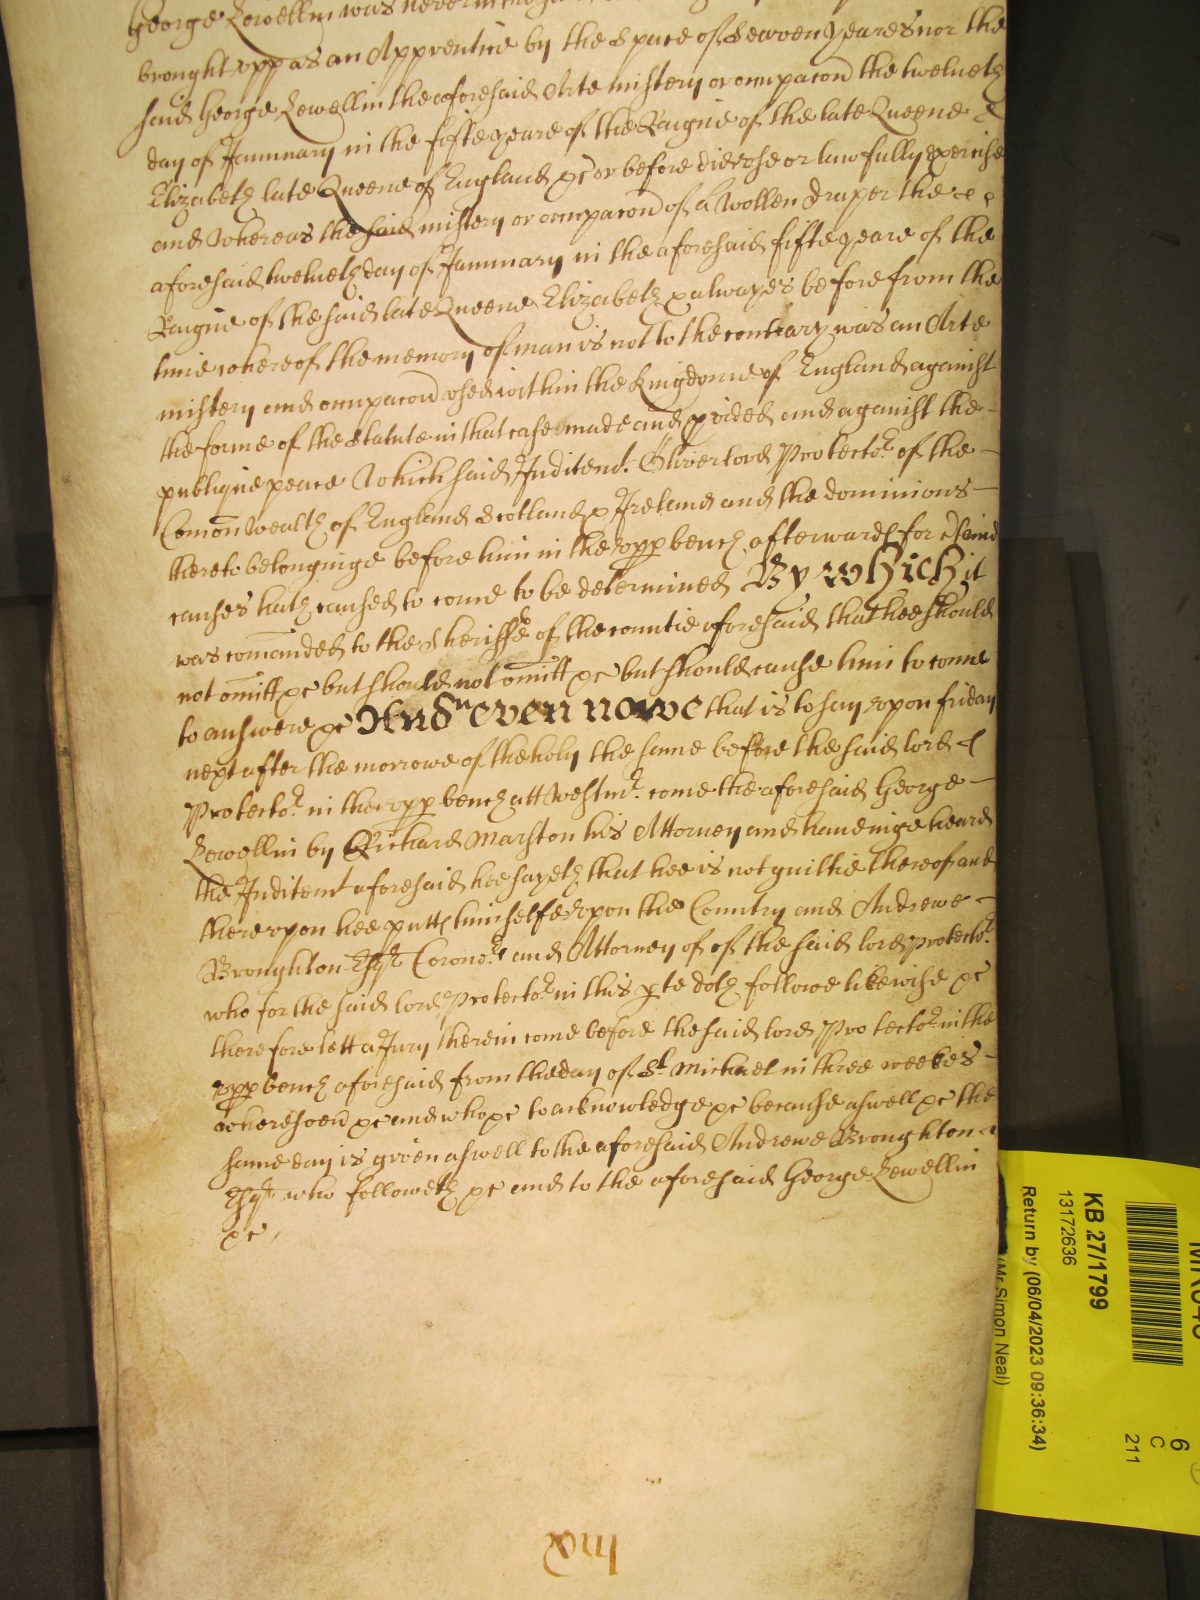 George Lewellin was never in the
brought upp as an Apprentice by the Space of Seaven yeares nor the
said George Lewellin the aforesaid Arte mistery or occupacon the twelveth
day of Jannuary in the fifte yeare of the Raigne of the late Queene
Elizabeth late Queene of England &c or before did vse or lawfully exercise
and Whereas the said mistery or occupacon of a Wollen draper the
aforesaid twelueth day of Jannuary in the aforesaid fifte yeare of the
Raigne of the said late Queene Elizabeth & alwayes before from the
time whereof the memory of man is not to the contrary was an Arte
mistery and occupacon vsed within the Kingdome of England against
the forme of the Statute in that case made and pvided and against the
publique peace Which said Inditemt. Oliver lord Protector of the
Comon Wealth of England Scotland & Ireland and the dominions
thereto belonginge before him in the vpp bench afterwards for certaine
causes hath caused to come to be determined By which it
was comanded to the Sheriffe of the countie aforesaid that hee should
not omitt &c but should not omitt &c but should cause him to come
to answere &c And even nowe that is to say vpon friday
next after the morrowe of the holy the same before the said lord
Protector in the vpp bench att Westmr. come the aforesaid George
Lewellin by Richard Marston his Attorney and haueinge heard
the Inditemt aforesaid hee sayeth that hee is not guiltie thereof and
therevpon hee putts himselfe vpon the Country and Andrewe
Broughton Esqr Coronor and Attorney of of the said lord protector
who for the said lord Protector in this pte doth followe likewise &c
therefore lett a Jury therein come before the said lord Protector in the
vpp bench aforesaid from the day of St. Michael in three weekes
wheresoeu &c and who &c to acknowledge &c because aswell &c the
same day is given aswell to the aforesaid Andrewe Broughton
Esqr who followeth &c and to the aforesaid George Lewellin
&c
KB 27/1799
13172636
Return by (06/04/2023 09:36:34)
(Mr Simon Neal)
6
C
211